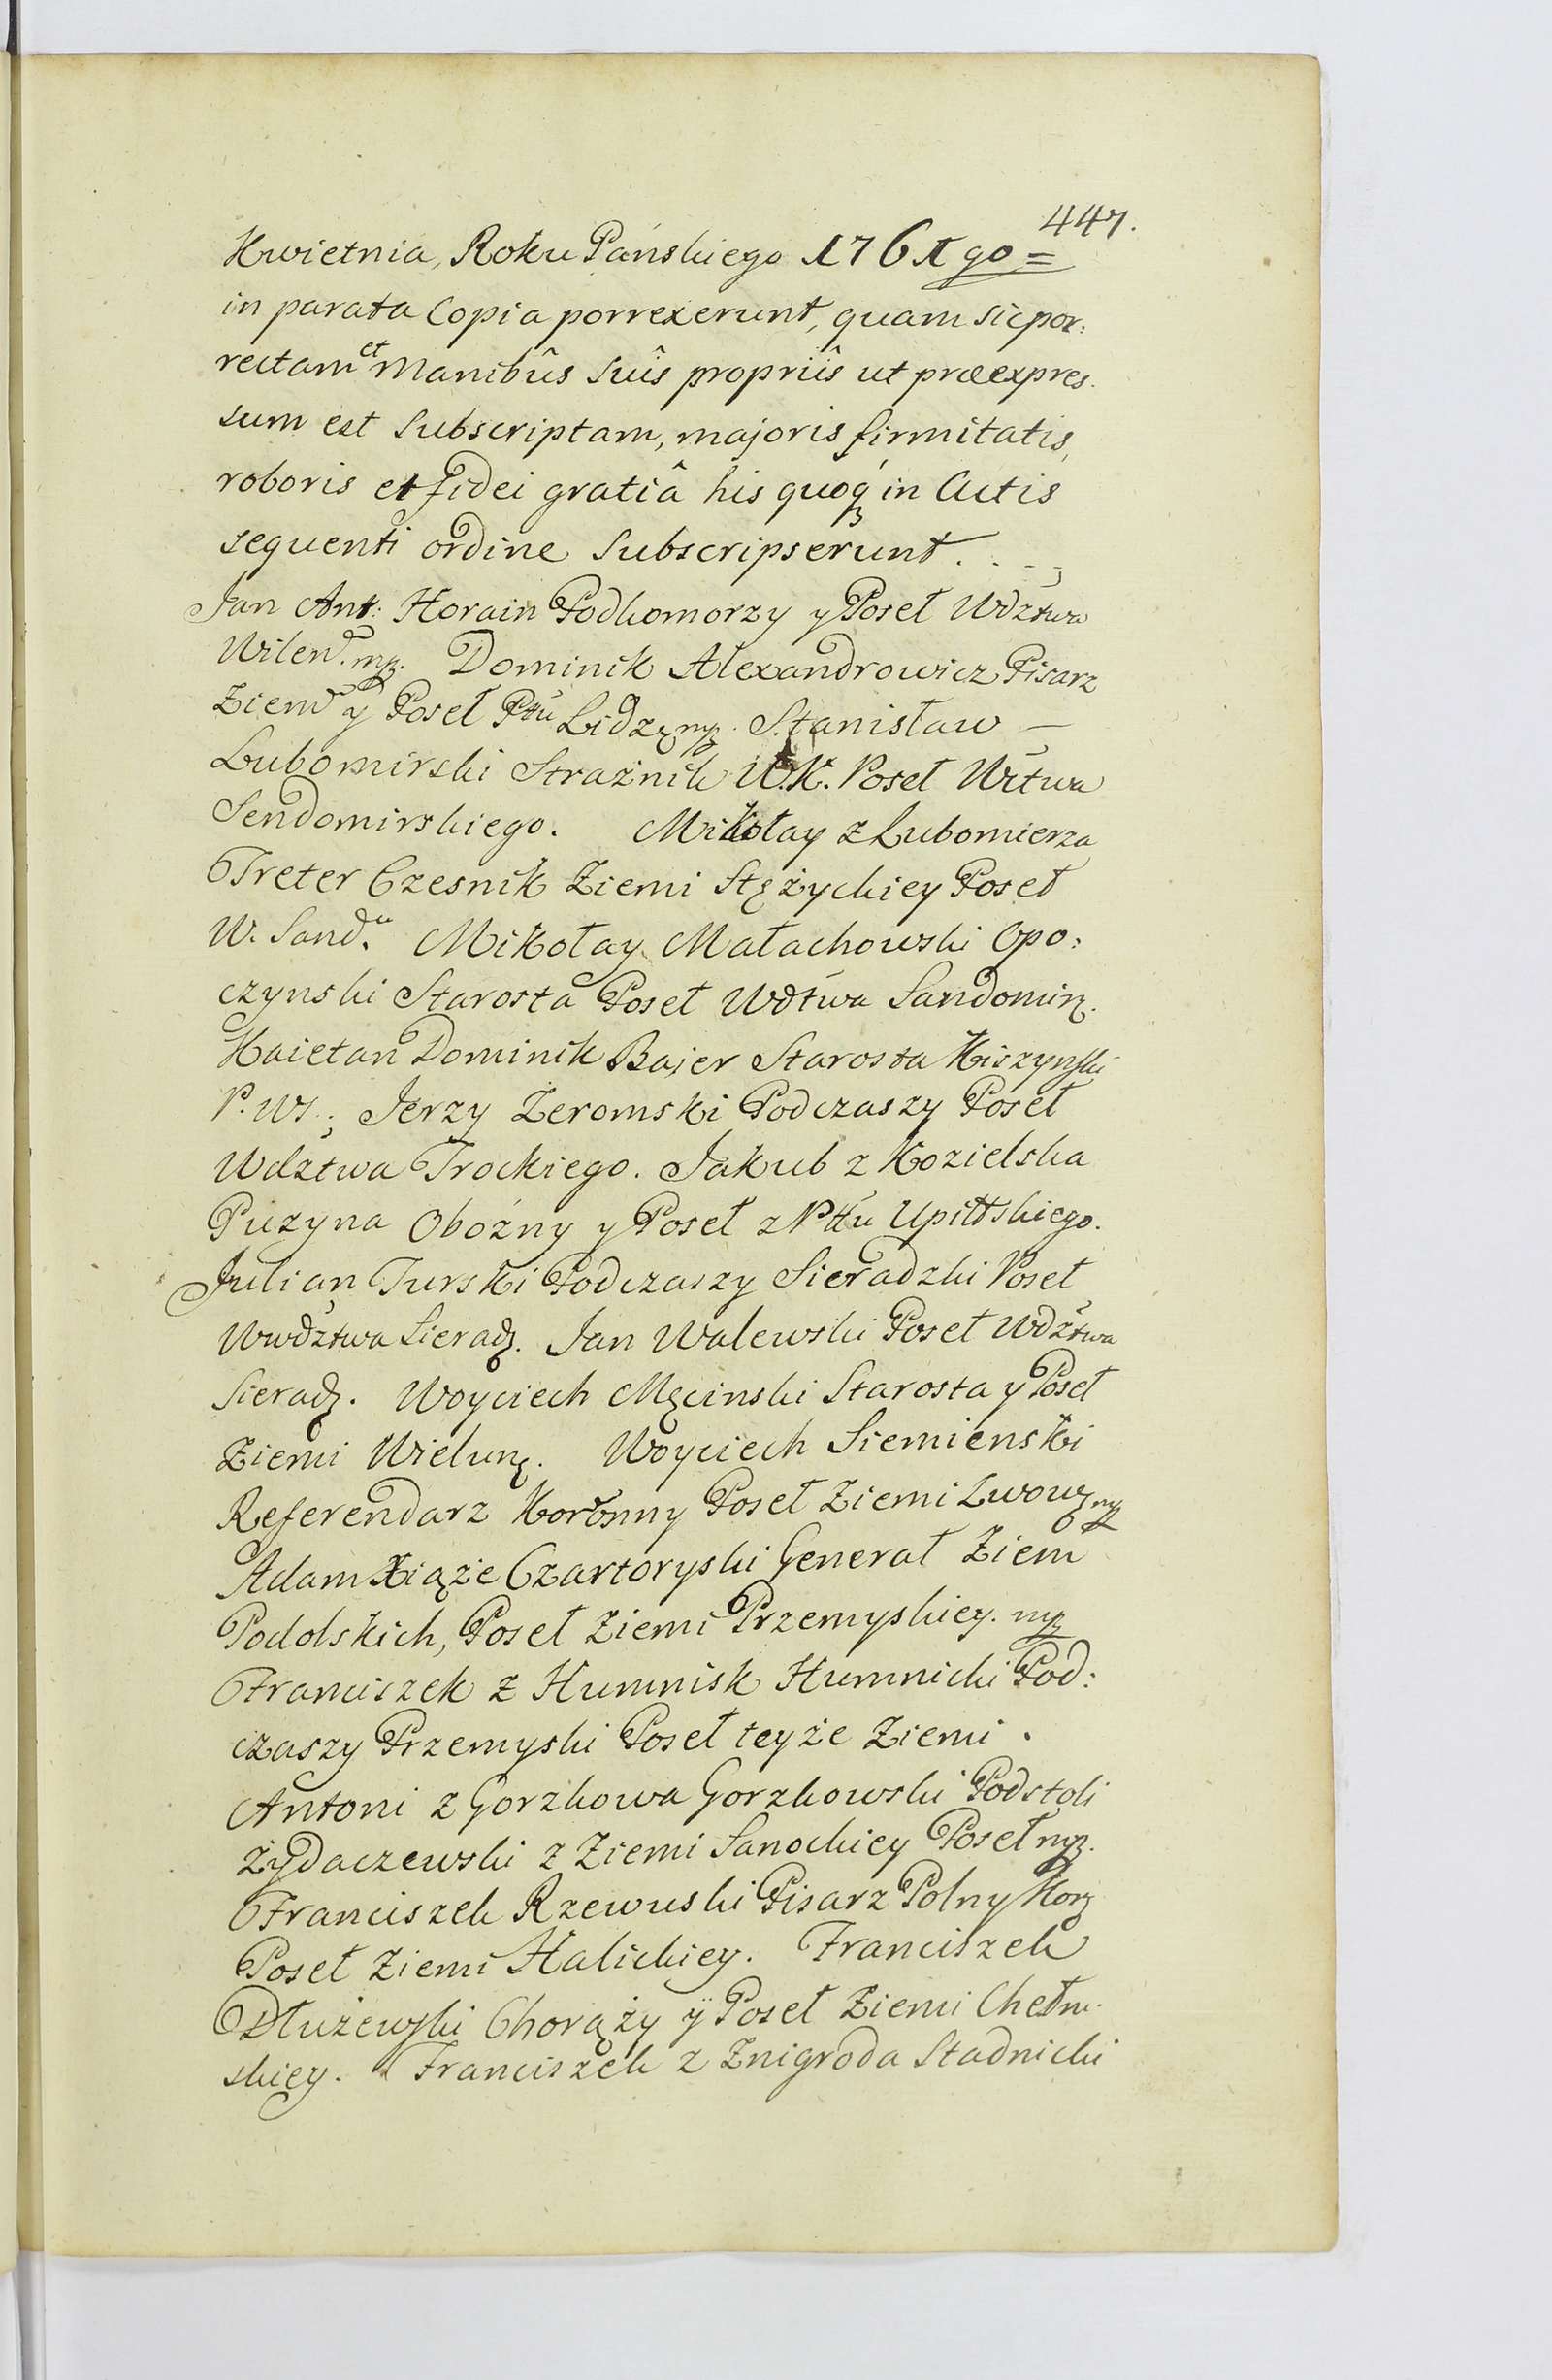 447.
Kwietnia, Roku Pańskiego 1761go =
in parata Copia porrexerunt, quam sic por:
rectam et Manibûs suîs propriîs ut præexpres.
sum est subscriptam, majoris firmitatis,
roboris et fidei gratiâ his quoq́ in Actis
sequenti ordine subscripserunt. . - -
Jan Ant: Horain Podkomorzy y Poseł Wdztwa
Wilen. mp. Dominik Alexandrowicz Pisarz
Ziem y Poseł Pttu Lidz. mp. Stanisław —
Lubomirski Strażnik W.K. Poseł Wttwa
Sendomirskiego. Mikołay z Lubomierza
Treter Czesnik Ziemi Stężyckiey Poseł
W. Sand. Mikołay Małachowski Opo:
czynski Starosta Poseł Wdtwa Sandomirz.
Kaietan Dominik Bajer Starosta Kiszyński
P. WS.; Jerzy Zeromski Podczaszy Poseł
Wdztwa Trockiego. Jakub z Kozielska
Puzyna Oboźny y Poseł z Pttu Upittskiego.
Julian Turski Podczaszy Sieradzki Poseł
Wwdztwa Sieradz. Jan Walewski Poseł Wdztwa
Sieradz. Woyciech Męcinski Starosta y Poseł
Ziemi Wielun. Woyciech Siemienski
Referendarz Koronny Poseł Ziemi Lwow. mp
Adam Xiąże Czartoryski Generał Ziem
Podolskich, Poseł Ziemi Przemyskiey. mp
Franciszek z Humnisk Humnicki Pod:
czaszy Przemyski Poseł teyże Ziemi .
Antoni z Gorzkowa Gorzkowski Podstoli
Żydaczewski z Ziemi Sanockiey Poseł mp.
Franciszek Rzewuski Pisarz Polny Kor
Poseł Ziemi Halickiey. Franciszek
Dłużewski Chorąży ÿ Poseł Ziemi Chełm.
skiey. Franciszek z Zmigroda Stadnicki